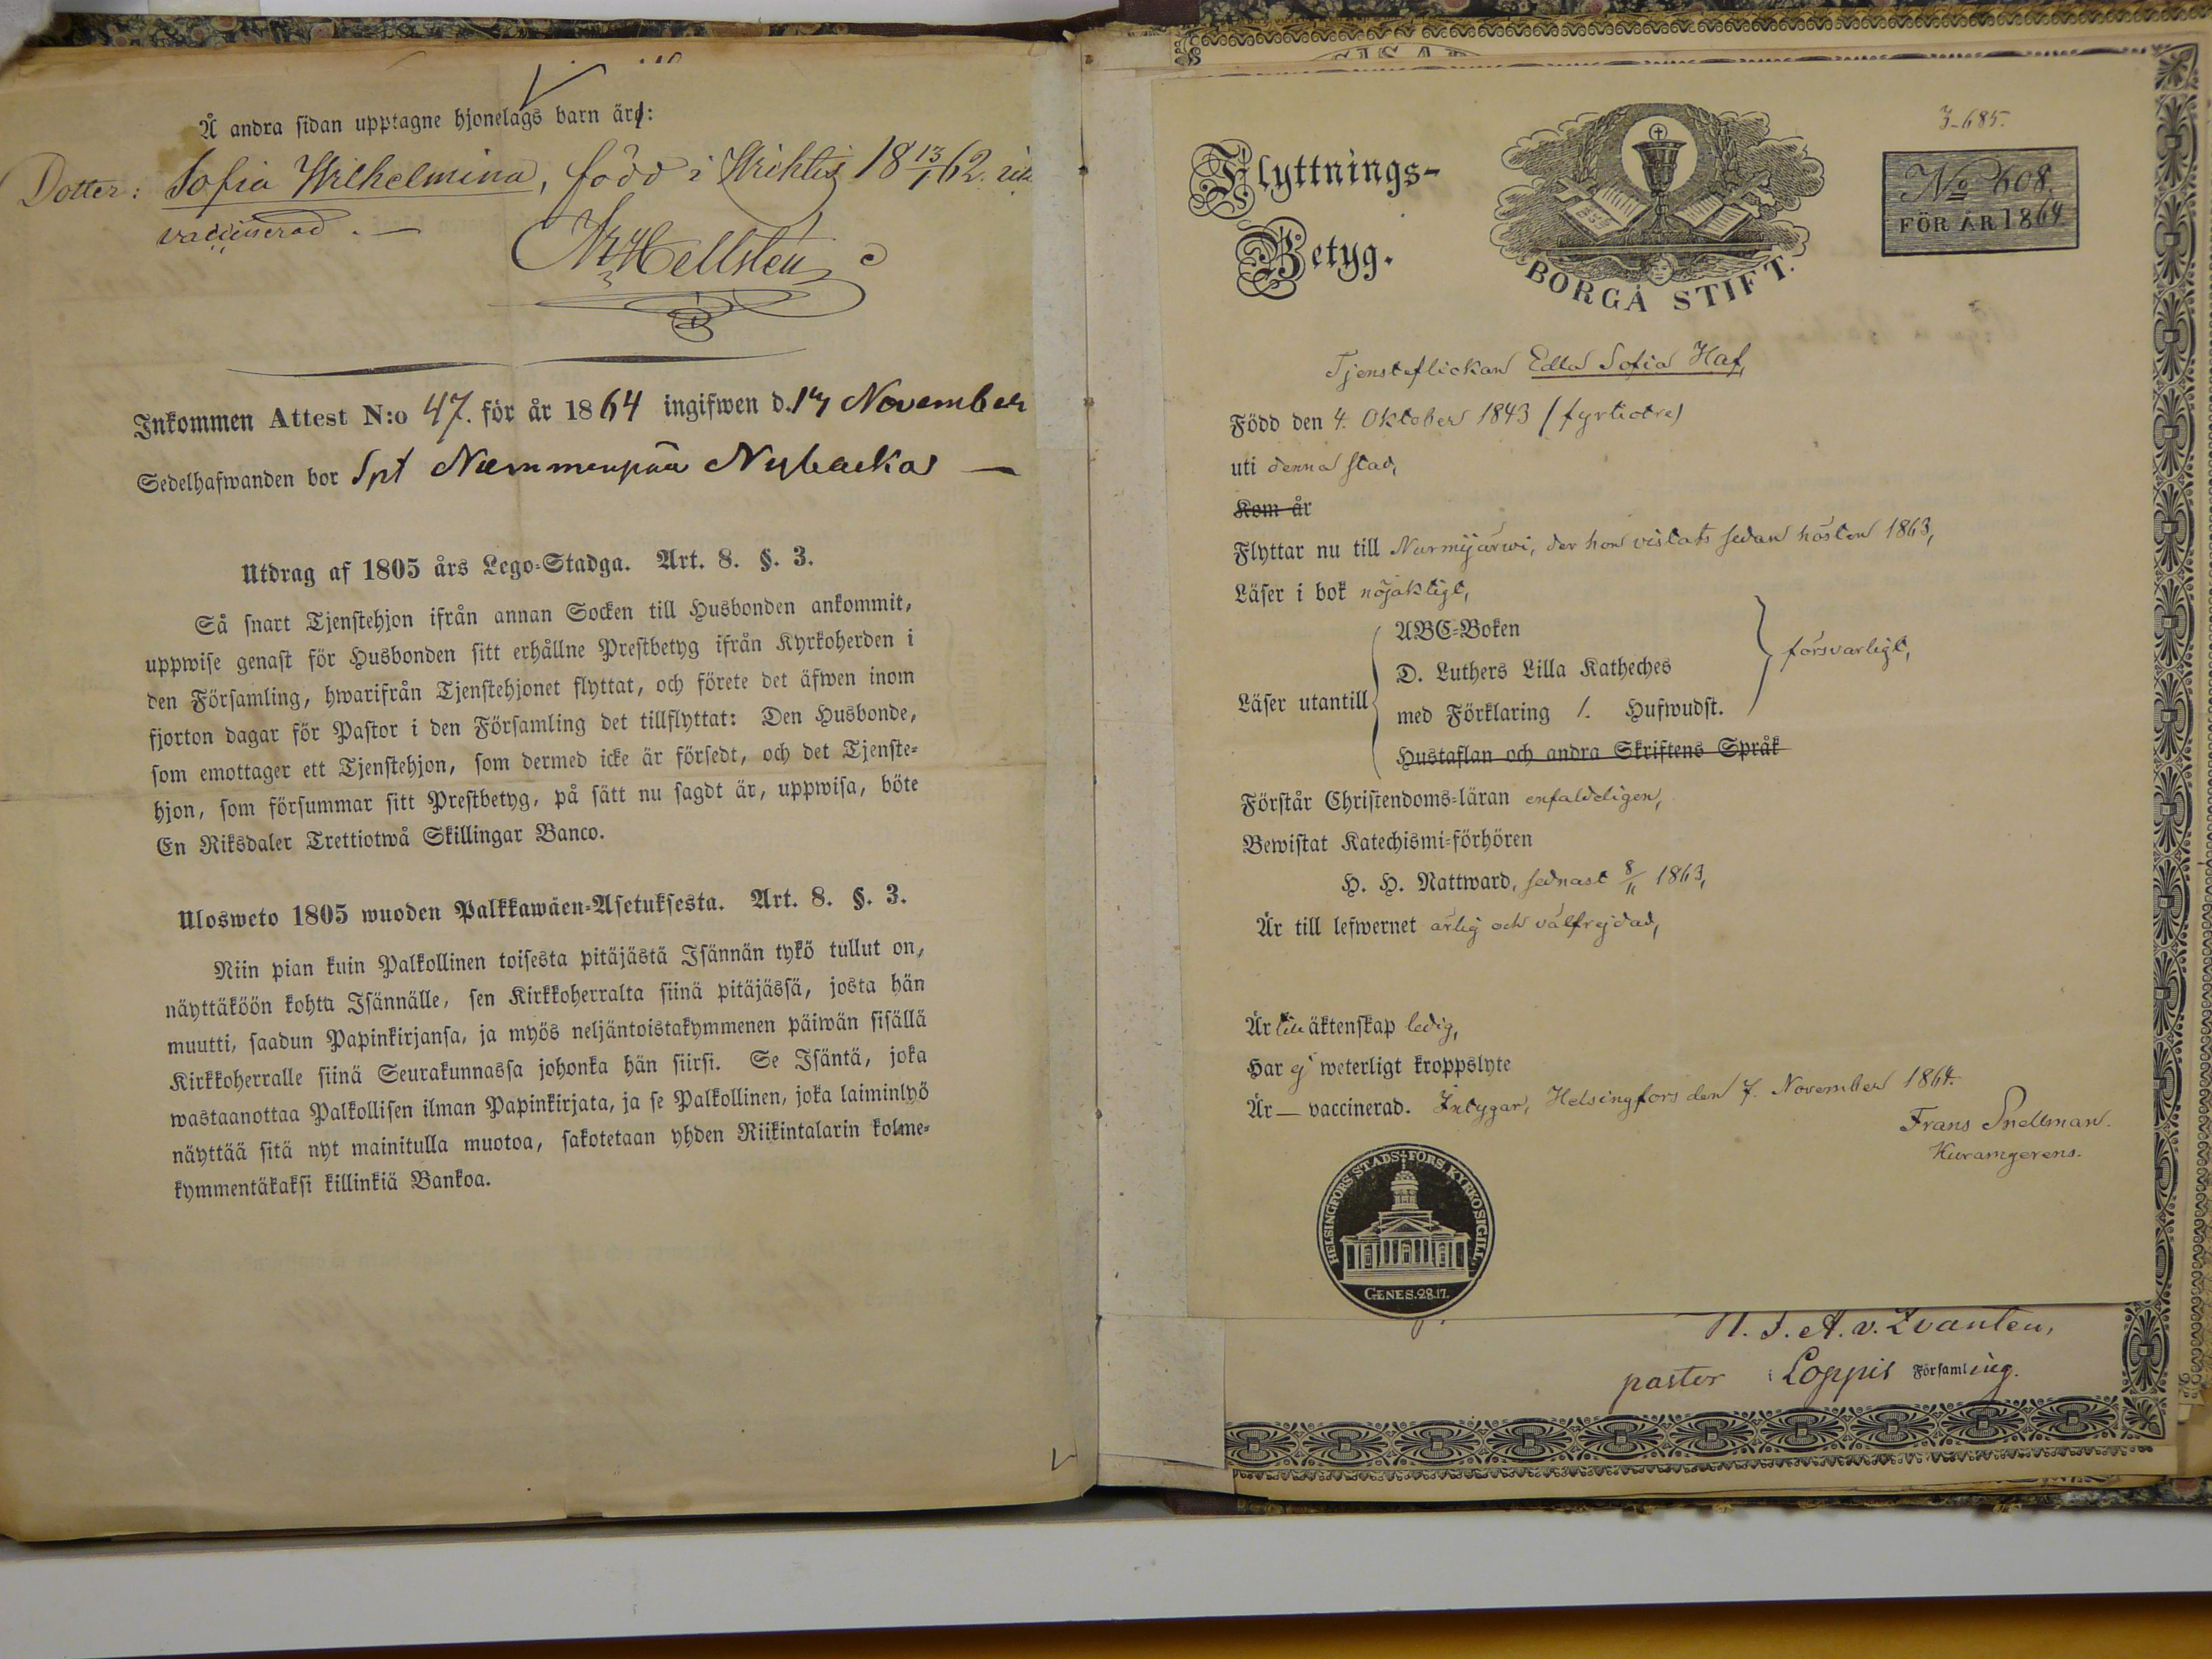 Å andra sidan upptagne hjonelags barn är:
Dotter: Sofia Wilhelmina, född i Wichtis 18 13/1 62.
vaccinerad. —
Hellsten
Inkommen Attest N:o 47. för år 1864 ingifwen d. 14 November
Sedelhafwanden bor Spt Nummenpää Nybacka —
Utdrag af 1805 års Lego-Stadga. Art. 8. §. 3.
Så snart Tjenstehjon ifrån annan Socken till Husbonden ankommit,
uppwise genast för Husbonden sitt erhållne Prestbetyg ifrån Kyrkoherden i
den Församling, hwarifrån Tjenstehjonet flyttat, och förete det äfwen inom
fjorton dagar för Pastor i den Församling det tillflyttat: Den Husbonde,
som emottager ett Tjenstehjon, som dermed icke är försedt, och det Tjenste-
hjon, som försummar sitt Prestbetyg, på sätt nu sagdt är, uppwisa, böte
En Riksdaler Trettiotwå Skillingar Banco.
Ulosweto 1805 wuoden Palkkawäen-Asetuksesta. Art. 8. §. 3.
Niin pian kuin Palkollinen toisesta pitäjästä Isännän tykö tullut on,
näyttäköön kohta Isännälle, sen Kirkkoherralta siinä pitäjässä, josta hän
muutti, saadun Papinkirjansa, ja myös neljäntoistakymmenen päiwän sisällä
Kirkkoherralle siinä Seurakunnassa johonka hän siirsi. Se Isäntä, joka
wastaanottaa Palkollisen ilman Papinkirjata, ja se Palkollinen, joka laiminlyö
näyttää sitä nyt mainitulla muotoa, sakotetaan yhden Riikintalarin kolme-
kymmentäkaksi killinkiä Bankoa.
3-685.
Flyttnings-
Betyg.
BORGÅ STIFT.
No 608.
FÖR ÅR 1864
Tjensteflickan Edla Sofia Haf,
Född den 4. Oktober 1843 (fyrtiotre)
uti denna stad,
Kom år
Flyttar nu till Nurmijärwi, der hon vistats sedan hösten 1863,
Läser i bok nöjaktigt,
ABC-Boken
D. Luthers Lilla Katheches
försvarligt,
Läser utantill
med Förklaring 1. Hufwudst.
Hustaflan och andra Skriftens Språk
Förstår Christendoms-läran enfaldeligen,
Bewistat Katechismi-förhören
H. H. Nattward, sednast 8/11 1863,
Är till lefwernet ärlig och välfrejdad,
Är till äktenskap ledig,
Har ej weterligt kroppslyte
Är — vaccinerad. Intygar, Helsingfors den 7. November 1864.
Frans Snellman.
HELSINGFORS STADS FÖRS. KYRKOSIGILL.
GENES. 28.17.
pastor i Loppis Församling.